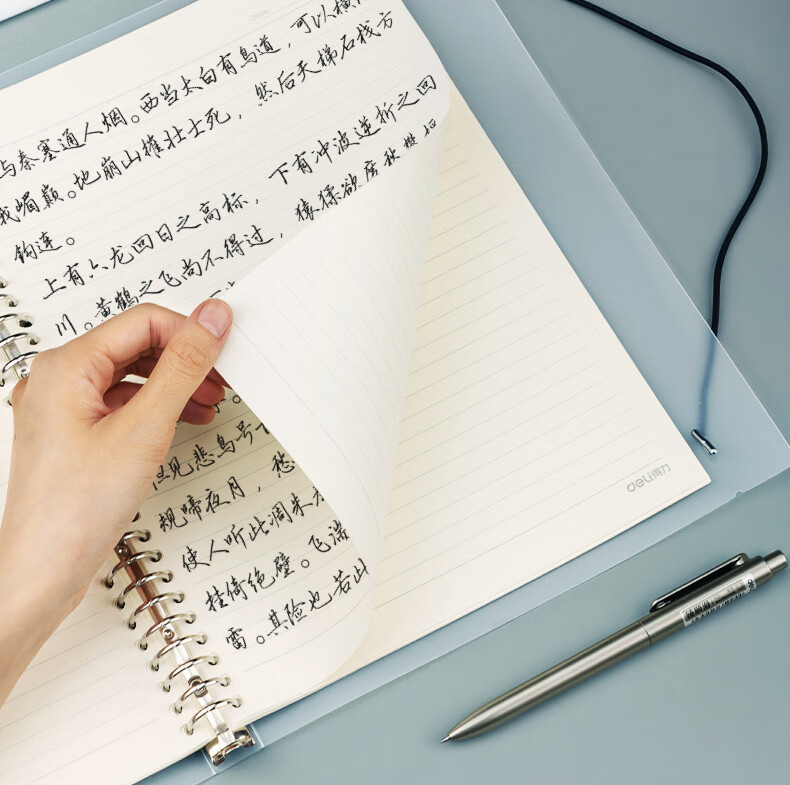 与秦塞通人烟。西当太白有鸟道，可以横
峨嵋巅。地崩山摧壮士死，然后天梯石栈方
钩连。
上有六龙回日之高标，下有冲波逆折之回
川。黄鹤之飞尚不得过，猿猱欲度愁攀
但见悲鸟号
规啼夜月，愁
使人听此凋朱
挂倚绝壁。飞湍
雷。其险也若此
deli得力